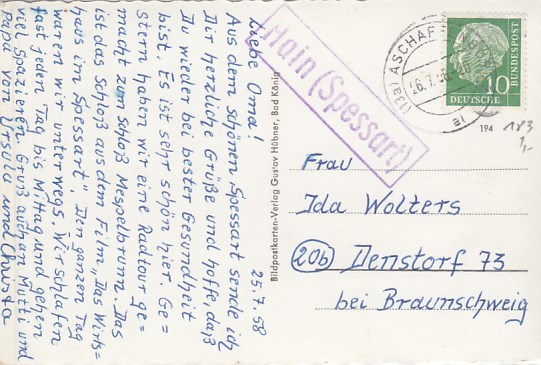 25.7.58
Liebe Oma!
Aus dem schönen Spessart sende ich
Dir herzliche Grüße und hoffe, daß
Du wieder bei bester Gesundheit
bist. Es ist sehr schön hier. Ge=
stern haben wir eine Radtour ge=
macht zum Schloß Mespelbrunn. Das
ist das Schloß aus dem Film „Das Wirts=
haus im Spessart". Den ganzen Tag
waren wir unterwegs. Wir schlafen
fast jeden Tag bis Mittag und gehen
viel spazieren. Gruß auch an Mutti und
Papa von Ursula und Christa
Hain (Spessart)
Bildpostkarten-Verlag Gustav Hübner, Bad König
(13a) ASCHAFF
26.7.58
DEUTSCHE
BUNDESPOST
10
194
183
1,-
Frau
Ida Wolters
(20b) Denstorf 73
bei Braunschweig